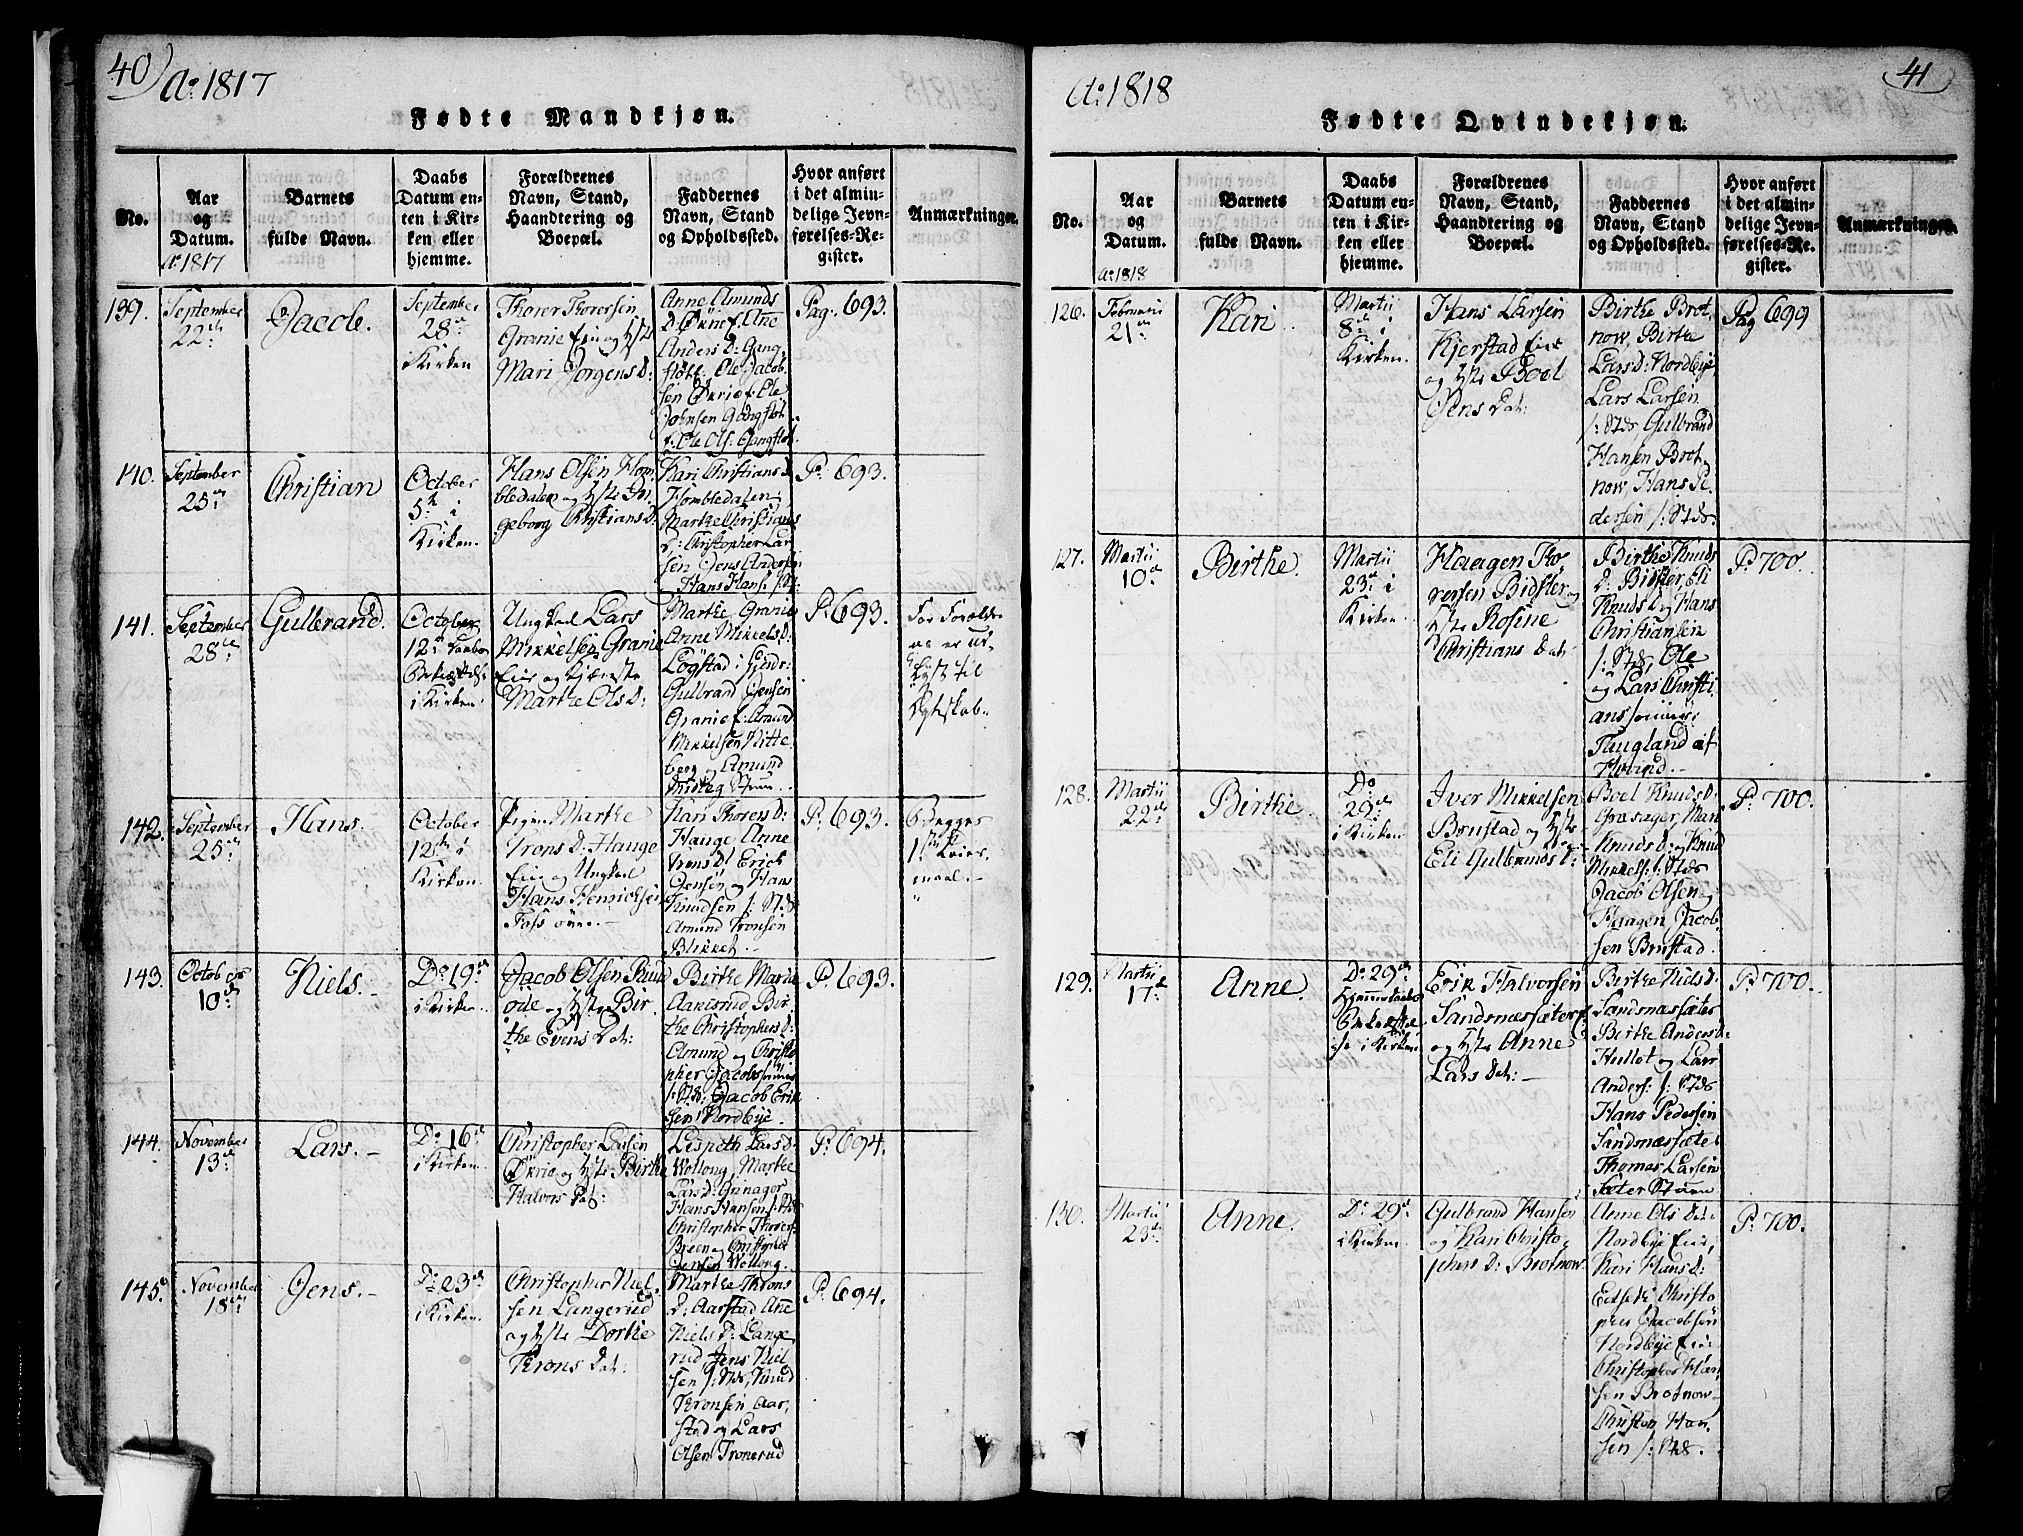 40
Ao: 1817
Fødte Mandkjøn.
No.
Aar
og
Datum.
Ao 1817
Barnets
fulde Navn.
Daabs
Datum en-
ten i Kir-
ken eller
hjemme.
Forældrenes
Navn, Stand,
Haandtering og
Boepæl.
Faddernes
Navn, Stand
og Opholdssted.
Hvor anført
i det almin-
delige Jevn-
førelses-Re-
gister.
Anmærkninger.
139.
September
22de
Jacob.
September
28de
i Kirken
Thorer Thoresen
Granie Eie og Hste
Mari Jørgens D:
Anne Amunds
D: Økrie f. Ane
Anders D: Gang
fløtt: Ole Jacob
sen Økrie f. Ole
Johnsen Gangfløt
f: Ole Ols: Gangfløt.
Pag: 693.
140.
September
25de
Christian
October
5te i
Kirken.
Hans Olsen Hom
bledalen og Hste In
geborg Christians D:
Kari Christians D
Hombledalen
Marthe Christians
D: Christopher Lar
sen Jens Andersen
Hans Hans: f: St:
P: 693.
141.
September
28de
Gulbrand.
October
12te
i Kirken
Ungkal Lars
Mikkelsen Granie
Eie og Kjæreste
Marthe Ols D:
Marthe Granie
Anne Mikkels D:
Løgstad i
Gulbrand Jensen
Granie f: Amund
Mikkelsen Nitte
berg og Amund
P: 693.
For Forældre
ne er ud
lyst til
Ægteskab.
142.
September
25de
Hans.
October
12te i
Kirken.
Pigen Marthe
Trons D: Hauge
Eie og Ungkal
Hans Henrichsen
Kari Thorers D:
Hauge, Anne
Trons D: Erich
Jensen og Hans
Knudsen f: Stds
Amund Tronsen
Blikket.
P: 693.
Begges
1ste Leier
maal.
143.
October
10de
Niels.
Do 19de
i Kirken.
Jacob Olsen Ruud
øde og Hste Bir
the Evens Dat:
Birthe Marie
Aamsrud Bir
the Christophers D:
Amund og Christo
pher Jacobsønner
f: Stds: Jacob Erik
sen Nordbye.
P: 693.
144.
November
13de
Lars.
Do 16de
i Kirken.
Christopher Larsen
Økrie og Hste Birthe
Halvors Dat:
Lispeth Lars D:
Wollong, Marthe
Lars D: Grinager
Hans Hansen f: Stds
Christopher Thorer
Breen og Christopher
Jensen Wollong.
P: 694.
145.
November
18de
Jens.
Do 23de
i Kirken.
Christopher Niel
sen Langerud
og Hste Dorthe
Throns Dat:
Marthe Throns
D: Aarstad Ane
Niels D: Lange
rud, Jens Niel
sen f: Stds, Knud
Thronsen Aar
stad og Lars
Olsen Tronerud
P: 694.
41
Ao: 1818
Fødte Qvindekjøn.
No.
Aar
og
Datum.
Ao: 1818
Barnets
fulde Navn.
Daabs
Datum en-
ten i Kir-
ken eller
hjemme.
Forældrenes
Navn, Stand,
Haandtering og
Boepæl.
Faddernes
Navn, Stand
og Opholdssted.
Hvor anført
i det almin-
delige Jevn-
førelses-Re-
gister.
Anmærkninger.
126.
Februari
21de
Kari
Martii
8de i
Kirken.
Hans Larsen
Kjerstad Eie
og Hste Boel
Jens Dat:
Birthe Brot
now, Birthe
Lars D: Nordbye,
Lars Larsen
f: Stds, Gulbrand
Hansen Brot
now, Hans Pe
dersen f: Stds.
Pag 699
127.
Martii
10de
Birthe.
Martii
23de i
Kirken.
Haagen Tho
rersen Bidster og
Hste Rosine
Christians Dat:
Birthe Knuds
D: Bidster, Eli
Knuds D og Hans
Christiansen
f: Stds, Ole
og Lars Christi
ansønner
Haugland af
Hovind.
P: 700.
128.
Martii
22de
Birthe.
Do
29de
i Kirken.
Iver Mikkelsen
Brustad og Hste
Eli Gulbrands D:
Boel Knuds D:
Græsager, Mari
Knuds D: og Knud
Mikkels: f: Stds
Jacob Olsen og
Haagen Jacob
sen Brustad.
P: 700.
129.
Martii
17de
Anne.
Do 29de
Hjemmedaabs
i Kirken
Erik Halvorsen
Sandsnæssæter
og Hste Anne
Lars Dat:
Birthe Niels D:
Sandsnæssæter
Birthe Anders D:
Hullet og Lars
Anders: f: Stds
Hans Pedersen
Sandsnæssæter
Thomas Larsen
Sæter
P: 700.
130.
Martii
23de
Anne.
Do 29de
i Kirken.
Gulbrand Hansen
og Kari Christo
phers D: Brotnow.
Anne Ols Dat:
Nordbye Eie,
Kari Hans D:
Christo
pher Jacobsen
Nordbye Eie
Christopher Han
sen Brotnow
Christen Han
sen f: Stds.
P: 700.